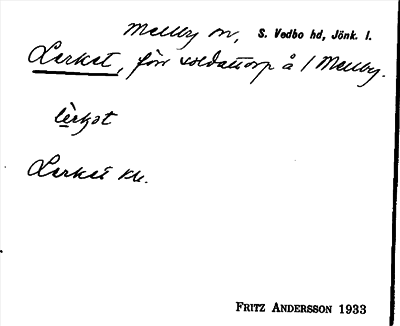 Mellby sn, S. Vedbo hd, Jönk. l.
Lerket, förr soldattorp å / Mellby.
lèrkət
Lerket Kk.
FRITZ ANDERSSON 1933